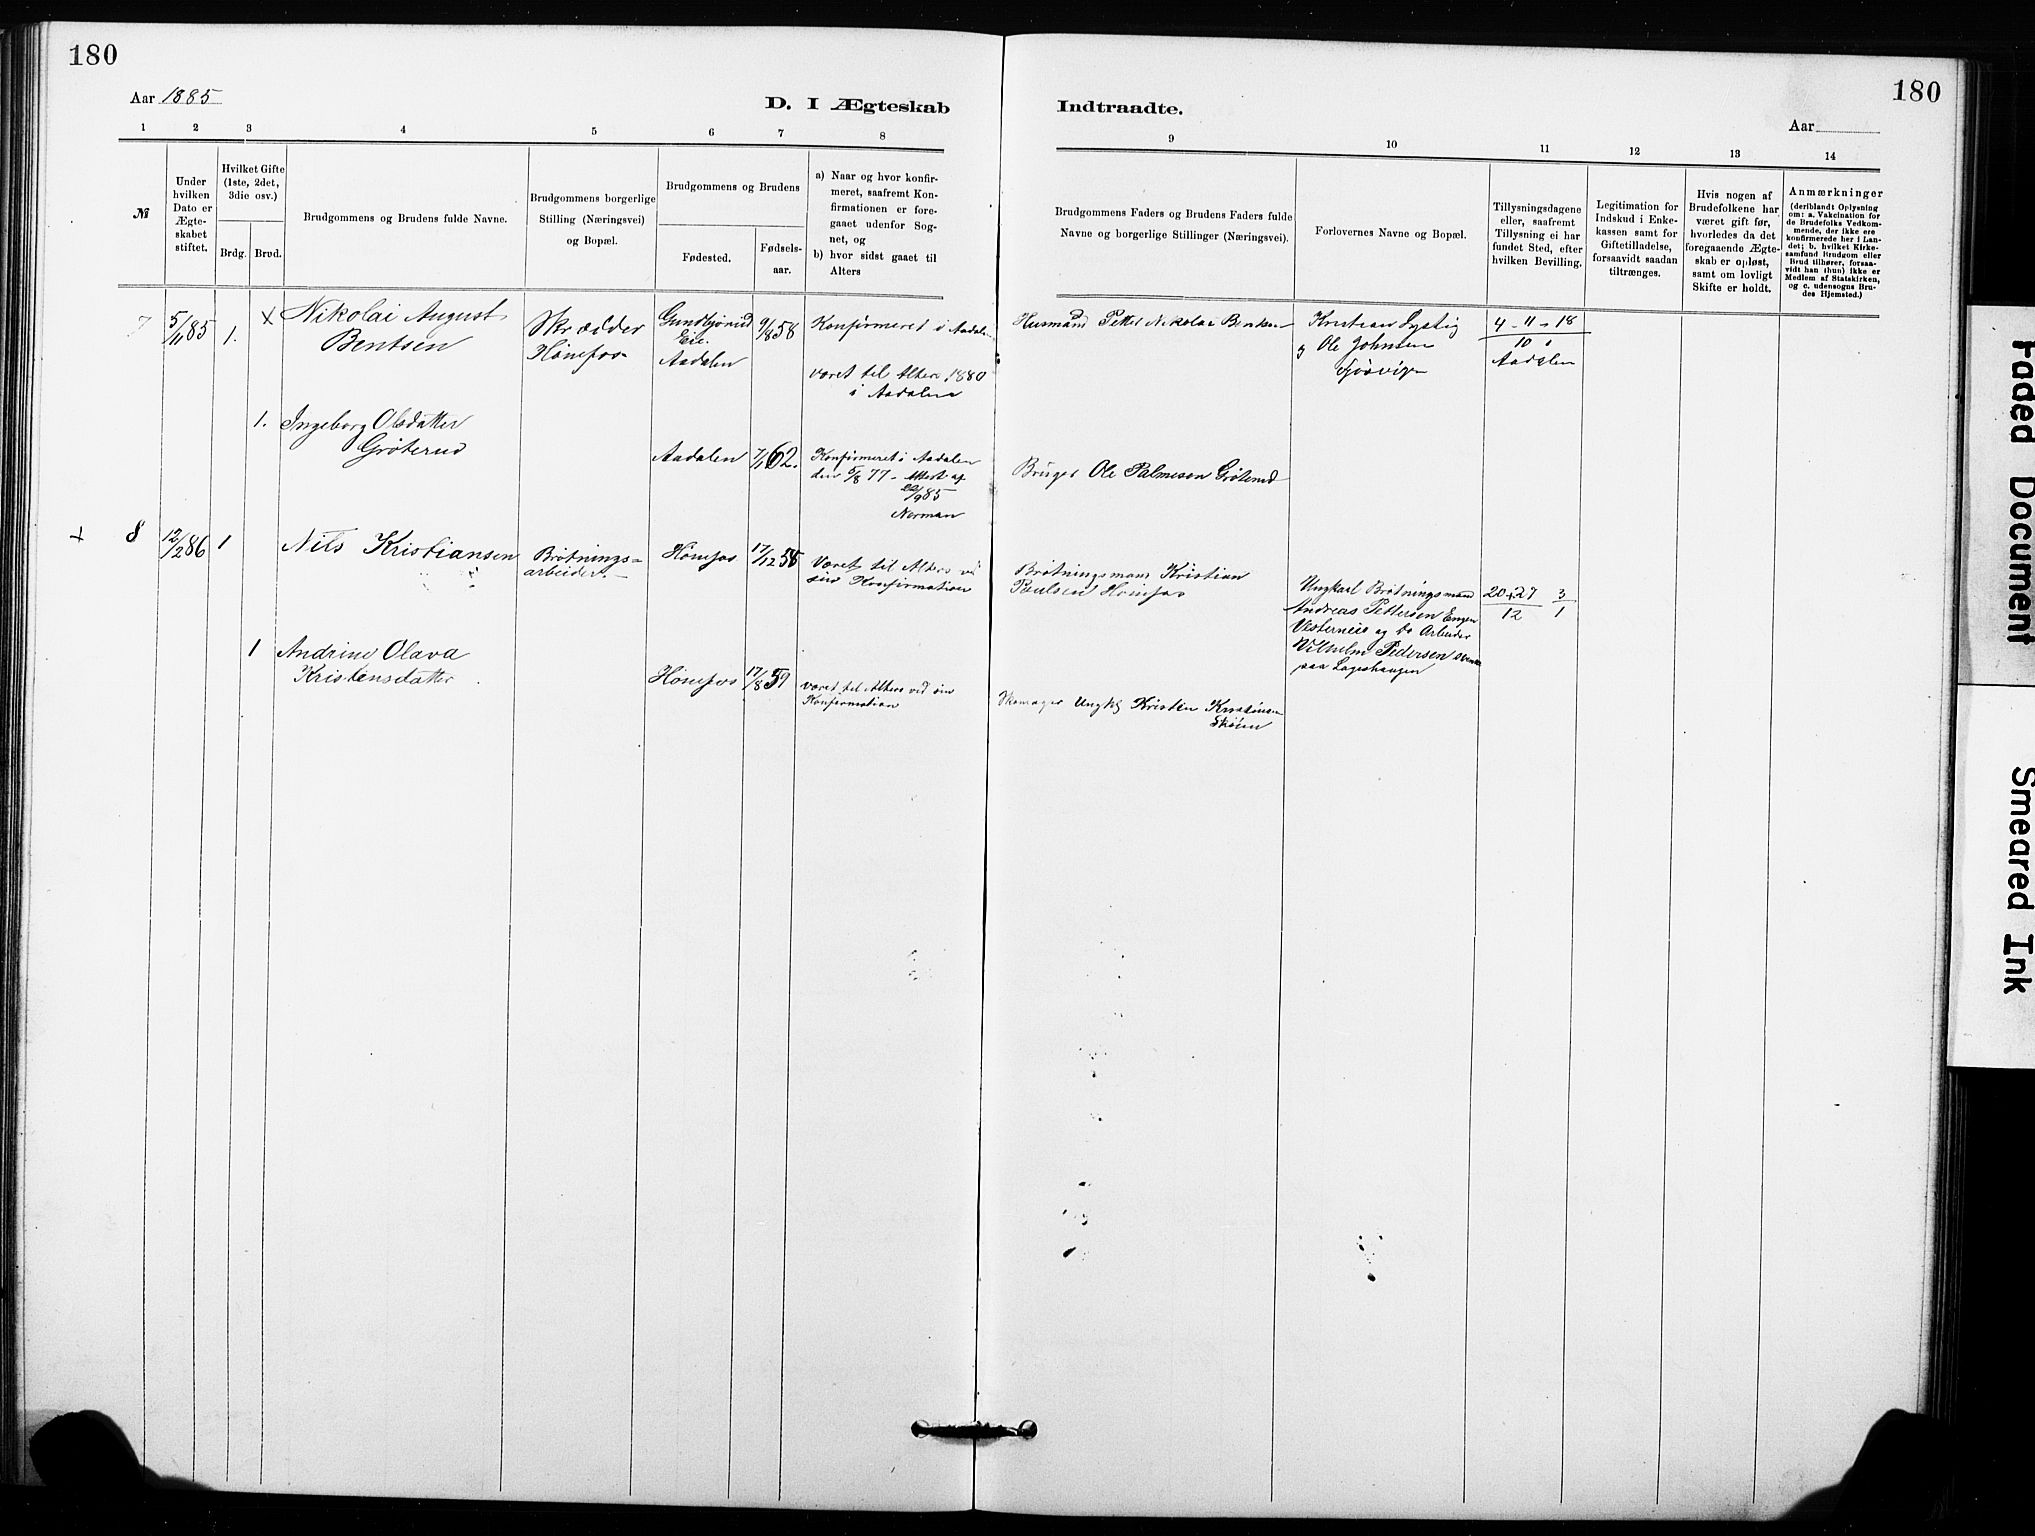 180
Aar 1885
D. I Ægteskab
1 2 3 4 5 6 7 8
№
Under
hvilken
Dato er
Ægte-
skabet
stiftet.
Hvilket Gifte
(1ste, 2det,
3die osv.)
Brdg. Brud.
Brudgommens og Brudens fulde Navne.
Brudgommens borgerlige
Stilling (Næringsvei)
og Bopæl.
Brudgommens og Brudens
Fødested.
Fødsels-
aar.
a) Naar og hvor konfir-
meret, saafremt Kon-
firmationen er fore-
gaaet udenfor Sog-
net, og
b) hvor sidst gaaet til
Alters
7
5/11 85
1.
X Nikolai August
Bentsen
Skrædder
Hønefos
Gundbjørud
Eie.
Aadalen
9/8 58
Konfirmeret i Aadalen
været til Alters 1880
i Aadalen
1. Ingeborg Olsdatter
Grøterud
Aadalen
7/1 62.
Konfirmeret i Aadalen
den 5/8 77 - Attest af
/9 85
Norman
+ 8
12/2 86
1
Nils Kristiansen
Brøtnings=
arbeider.
Hønefos
17/12 58
Været til Alters v
sin Konfirmation
1 Andrine Olava
Kristensdatter
Hønefos
17/8 57
været til Alters ved sin
Konfirmation
180
Indtraadte.
Aar
9 10 11 12 13 14
Brudgommens Faders og Brudens Faders fulde
Navne og borgerlige Stillinger (Næringsvei).
Forlovernes Navne og Bopæl.
Tillysningsdagene
eller, saafremt
Tillysning ei har
fundet Sted, efter
hvilken Bevilling.
Legitimation for
Indskud i Enke-
kassen samt for
Giftetilladelse,
forsaavidt saadan
tiltrænges.
Hvis nogen af
Brudefolkene har
været gift før,
hvorledes da det
foregaaende Ægte-
skab er opløst,
samt om lovligt
Skifte er holdt.
Anmærkninger
(deriblandt Oplysning
om: a. Vakcination for
de Brudefolks Vedkom-
mende, der ikke ere
konfirmerede her i Lan-
det; b. hvilket Kirke-
samfund Brudgom eller
Brud tilhører, forsaa-
vidt han (hun) ikke er
Medlem af Statskirken,
og c. udensogns Bru-
des Hjemsted.)
Husmand Petter Nikolai Bentsen
Kristian Lystig
og Ole Johnsen
4 - 11 - 18
10
Aadalen
Bruger Ole Palmeson Grøterud
Brøtningsmand Kristian
Paulsen Hønefos
Ungkarl Brøtningsmand
Andreas Pettersen Engen
Vesterneis og do Arbeider
Vilhelm Pedersen
paa Lageshaugen
20+27 3
12 1
Skomager Ungk Kristen Kristensen
Skøien
Faded Document
Smeared Ink